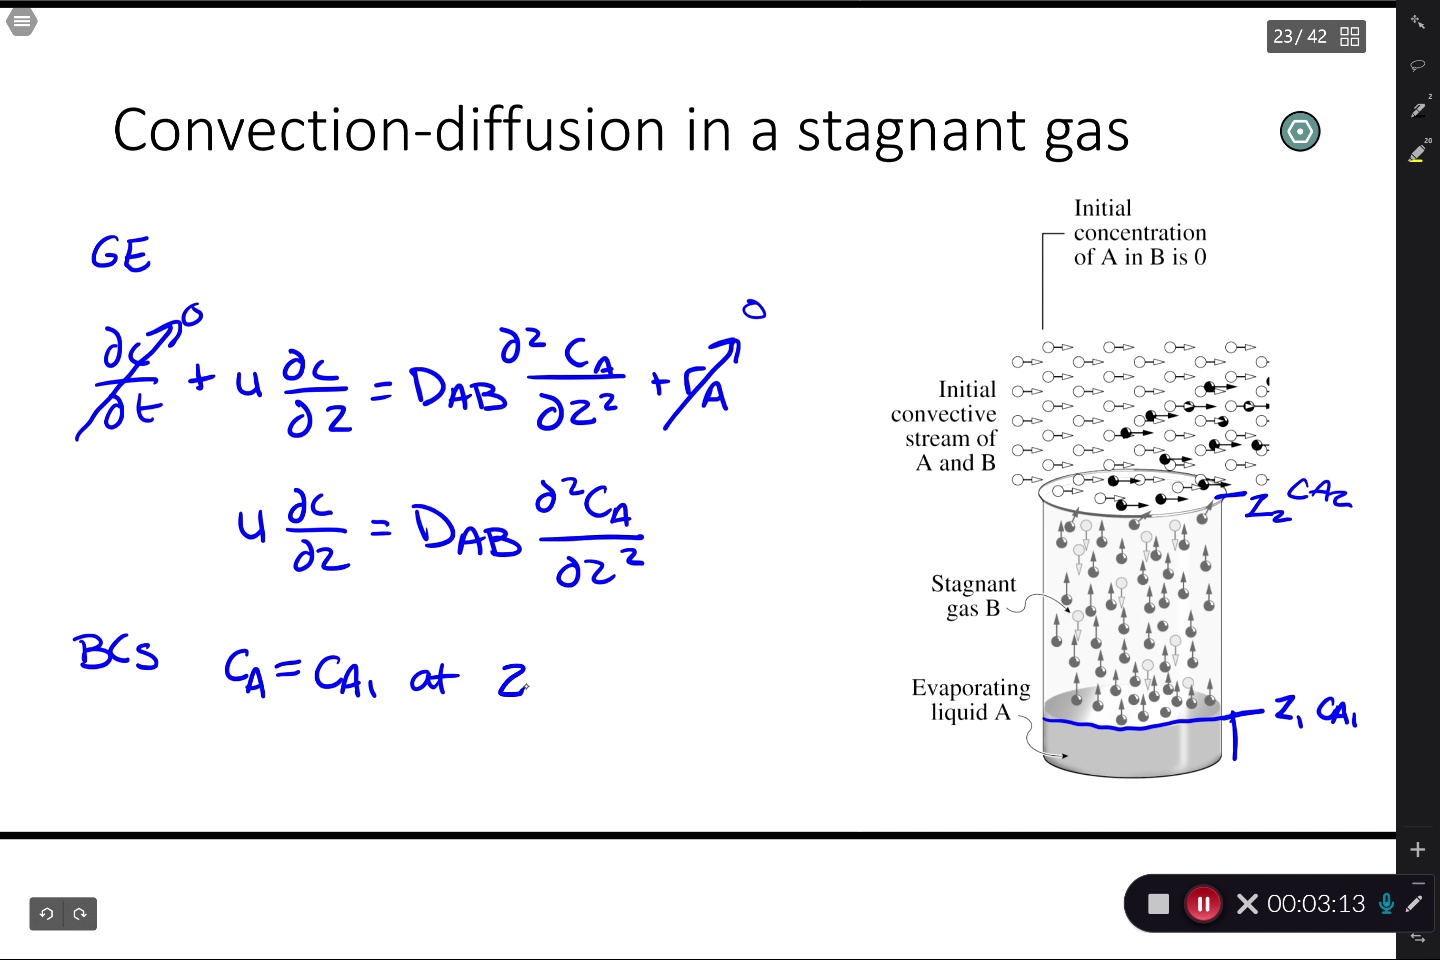 23 / 42
Convection-diffusion in a stagnant gas
GE
∂c/∂t → 0 + u ∂c/∂z = D_AB ∂²C_A/∂z² + r_A → 0
u ∂c/∂z = D_AB ∂²C_A/∂z²
BCs C_A = C_A1 at z
Initial
concentration
of A in B is 0
Initial
convective
stream of
A and B
z₂ C_A2
Stagnant
gas B
Evaporating
liquid A
z₁ C_A1
2
20
00:03:13